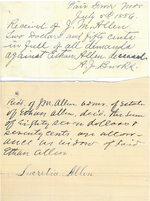 July 10th 1886.
Received of J. M. Allen
Two dollars and fifty cents
in full of all demands
against Ethan Allen deceased
Recd. of J M. Allen admr. of estate
of Ethan Allen decd. the sum
of Eighty seven dollars &
seventy cents our allow-
ance as widow of said
Ethan Allen
Allen